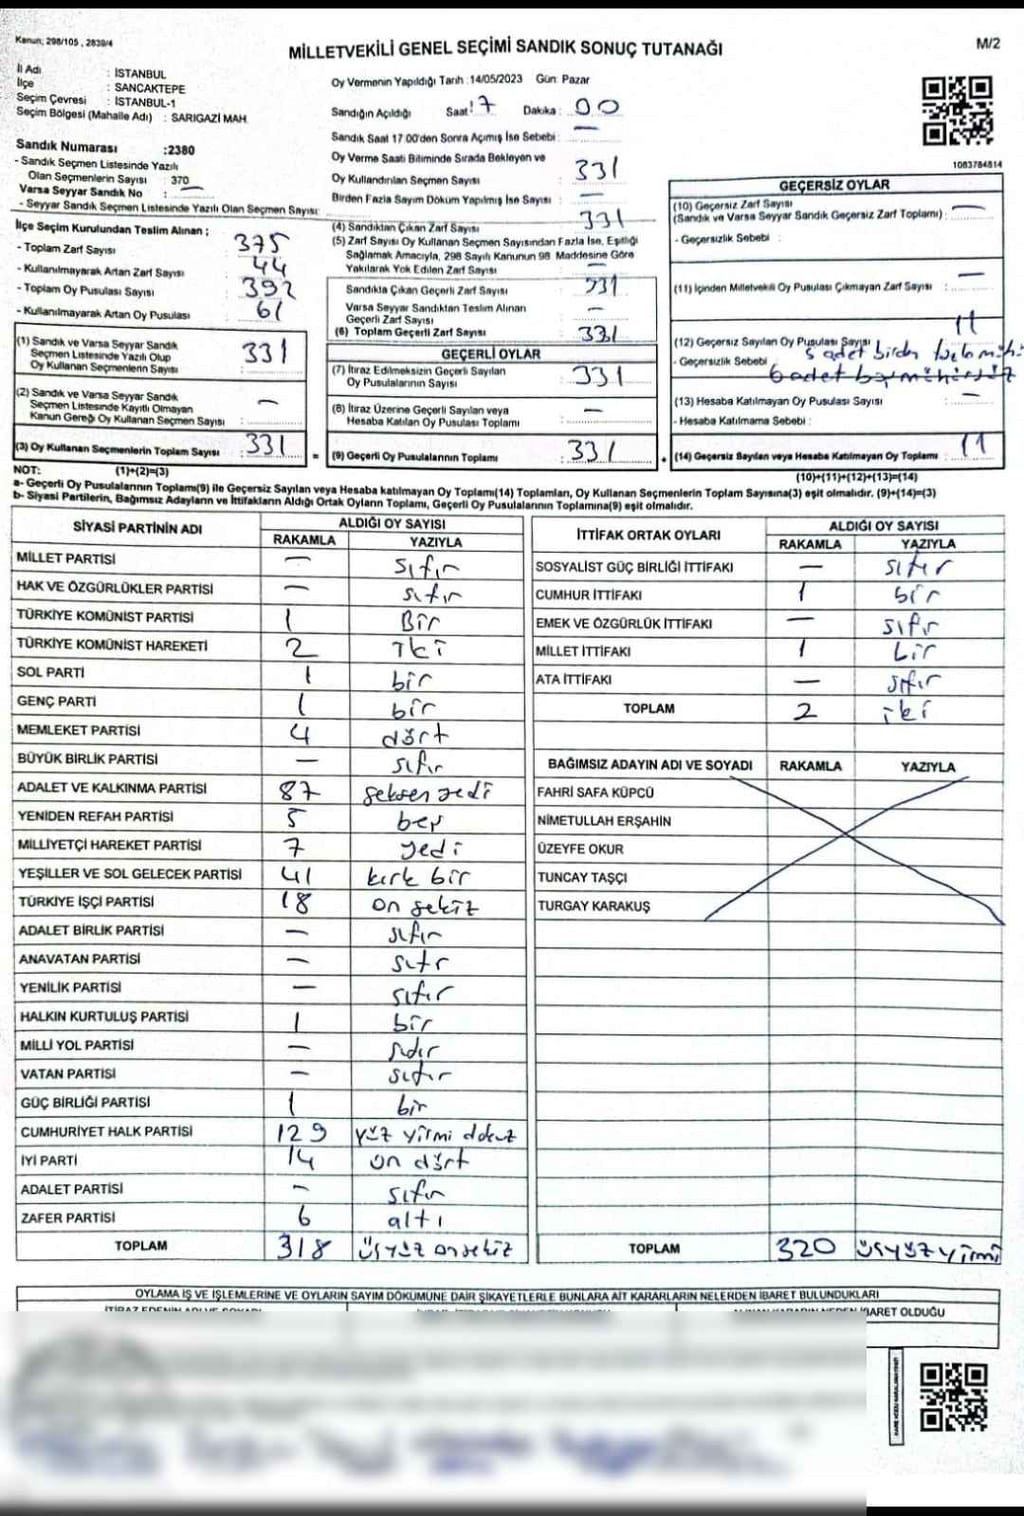 Kanun; 298/105 , 2839/4
MİLLETVEKİLİ GENEL SEÇİMİ SANDIK SONUÇ TUTANAĞI
M/2
İl Adı : İSTANBUL
İlçe : SANCAKTEPE
Seçim Çevresi : İSTANBUL-1
Seçim Bölgesi (Mahalle Adı) : SARIGAZİ MAH.
Sandık Numarası :2380
- Sandık Seçmen Listesinde Yazılı
Olan Seçmenlerin Sayısı : 370
Varsa Seyyar Sandık No : —
- Seyyar Sandık Seçmen Listesinde Yazılı Olan Seçmen Sayısı:
Oy Vermenin Yapıldığı Tarih :14/05/2023 Gün: Pazar
Sandığın Açıldığı Saat: 17 Dakika : 00
Sandık Saat 17.00'den Sonra Açılmış İse Sebebi : —
Oy Verme Saati Bitiminde Sırada Bekleyen ve
Oy Kullandırılan Seçmen Sayısı : 331
Birden Fazla Sayım Döküm Yapılmış İse Sayısı : —
1083784814
İlçe Seçim Kurulundan Teslim Alınan ;
- Toplam Zarf Sayısı : 375
- Kullanılmayarak Artan Zarf Sayısı : 44
- Toplam Oy Pusulası Sayısı : 392
- Kullanılmayarak Artan Oy Pusulası : 61
(1) Sandık ve Varsa Seyyar Sandık
Seçmen Listesinde Yazılı Olup
Oy Kullanan Seçmenlerin Sayısı : 331
(2) Sandık ve Varsa Seyyar Sandık
Seçmen Listesinde Kayıtlı Olmayan
Kanun Gereği Oy Kullanan Seçmen Sayısı : —
(3) Oy Kullanan Seçmenlerin Toplam Sayısı : 331
(4) Sandıktan Çıkan Zarf Sayısı : 331
(5) Zarf Sayısı Oy Kullanan Seçmen Sayısından Fazla İse, Eşitliği
Sağlamak Amacıyla, 298 Sayılı Kanunun 98 Maddesine Göre
Yakılarak Yok Edilen Zarf Sayısı : —
Sandıkta Çıkan Geçerli Zarf Sayısı : 331
Varsa Seyyar Sandıktan Teslim Alınan
Geçerli Zarf Sayısı : —
(6) Toplam Geçerli Zarf Sayısı : 331
GEÇERLİ OYLAR
(7) İtiraz Edilmeksizin Geçerli Sayılan
Oy Pusulalarının Sayısı : 331
(8) İtiraz Üzerine Geçerli Sayılan veya
Hesaba Katılan Oy Pusulası Toplamı : —
= (9) Geçerli Oy Pusulalarının Toplamı : 331
GEÇERSİZ OYLAR
(10) Geçersiz Zarf Sayısı
(Sandık ve Varsa Seyyar Sandık Geçersiz Zarf Toplamı) : —
- Geçersizlik Sebebi :
(11) İçinden Milletvekili Oy Pusulası Çıkmayan Zarf Sayısı : —
(12) Geçersiz Sayılan Oy Pusulası Sayısı : 11
- Geçersizlik Sebebi 5 adet birden fazla
6 adet
(13) Hesaba Katılmayan Oy Pusulası Sayısı : —
- Hesaba Katılmama Sebebi :
+ (14) Geçersiz Sayılan veya Hesaba Katılmayan Oy Toplamı : 11
NOT: (1)+(2)=(3)
(10)+(11)+(12)+(13)=(14)
a- Geçerli Oy Pusulalarının Toplamı(9) ile Geçersiz Sayılan veya Hesaba katılmayan Oy Toplamı(14) Toplamları, Oy Kullanan Seçmenlerin Toplam Sayısına(3) eşit olmalıdır. (9)+(14)=(3)
b- Siyasi Partilerin, Bağımsız Adayların ve İttifakların Aldığı Ortak Oyların Toplamı, Geçerli Oy Pusulalarının Toplamına(9) eşit olmalıdır.
SİYASİ PARTİNİN ADI ALDIĞI OY SAYISI
RAKAMLA YAZIYLA
MİLLET PARTİSİ — sıfır
HAK VE ÖZGÜRLÜKLER PARTİSİ — sıfır
TÜRKİYE KOMÜNİST PARTİSİ 1 Bir
TÜRKİYE KOMÜNİST HAREKETİ 2 İki
SOL PARTİ 1 bir
GENÇ PARTİ 1 bir
MEMLEKET PARTİSİ 4 dört
BÜYÜK BİRLİK PARTİSİ — sıfır
ADALET VE KALKINMA PARTİSİ 87 seksen yedi
YENİDEN REFAH PARTİSİ 5 beş
MİLLİYETÇİ HAREKET PARTİSİ 7 yedi
YEŞİLLER VE SOL GELECEK PARTİSİ 41 kırk bir
TÜRKİYE İŞÇİ PARTİSİ 18 on sekiz
ADALET BİRLİK PARTİSİ — sıfır
ANAVATAN PARTİSİ — sıfır
YENİLİK PARTİSİ — sıfır
HALKIN KURTULUŞ PARTİSİ 1 bir
MİLLİ YOL PARTİSİ — sıfır
VATAN PARTİSİ — sıfır
GÜÇ BİRLİĞİ PARTİSİ 1 bir
CUMHURİYET HALK PARTİSİ 129 yüz yirmi dokuz
İYİ PARTİ 14 on dört
ADALET PARTİSİ — sıfır
ZAFER PARTİSİ 6 altı
TOPLAM 318 üçyüz onsekiz
İTTİFAK ORTAK OYLARI ALDIĞI OY SAYISI
RAKAMLA YAZIYLA
SOSYALİST GÜÇ BİRLİĞİ İTTİFAKI — sıfır
CUMHUR İTTİFAKI 1 bir
EMEK VE ÖZGÜRLÜK İTTİFAKI — sıfır
MİLLET İTTİFAKI 1 bir
ATA İTTİFAKI — sıfır
TOPLAM 2 iki
BAĞIMSIZ ADAYIN ADI VE SOYADI RAKAMLA YAZIYLA
FAHRİ SAFA KÜPCÜ
NİMETULLAH ERŞAHİN
ÜZEYFE OKUR
TUNCAY TAŞÇI
TURGAY KARAKUŞ
TOPLAM 320 üçyüz yirmi
OYLAMA İŞ VE İŞLEMLERİNE VE OYLARIN SAYIM DÖKÜMÜNE DAİR ŞİKAYETLERLE BUNLARA AİT KARARLARIN NELERDEN İBARET BULUNDUKLARI
İBARET OLDUĞU